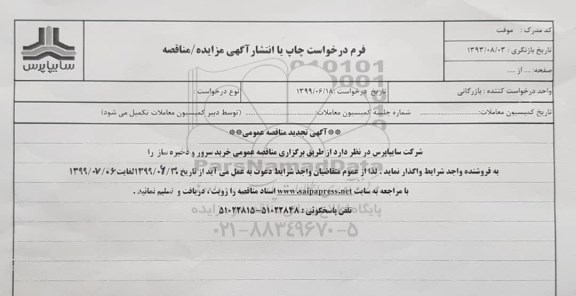 کد مدرک : موقت
فرم درخواست چاپ یا انتشار آگهی مزایده/مناقصه
تاریخ بازنگری : ۱۳۹۳/۰۸/۰۳
سایپاپرس
صفحه: ... از ...
واحد درخواست کننده : بازرگانی
تاریخ درخواست :۱۳۹۹/۰۶/۱۸
نوع درخواست :
تاریخ کمیسیون معاملات:
شماره جلسه کمیسیون معاملات:
(توسط دبیر کمیسیون معاملات تکمیل می شود)
**آگهی تجدید مناقصه عمومی**
شرکت سایپاپرس در نظر دارد از طریق برگزاری مناقصه عمومی خرید سرور و ذخیره ساز را
به فروشنده واجد شرایط واگذار نماید . لذا از عموم متقاضیان واجد شرایط دعوت به عمل می آید از تاریخ لغایت ۱۳۹۹/۰۷/۰۶
با مراجعه به سایت www.saipapress.net اسناد مناقصه را رویت ، دریافت و تسلیم نمائید .
تلفن پاسخگوئی : ۵۱۰۲۲۸۴۸-۵۱۰۲۳۸۱۵
ParsNamadData
۰۲۱-۸۸۳۴۹۶۷۰-۵